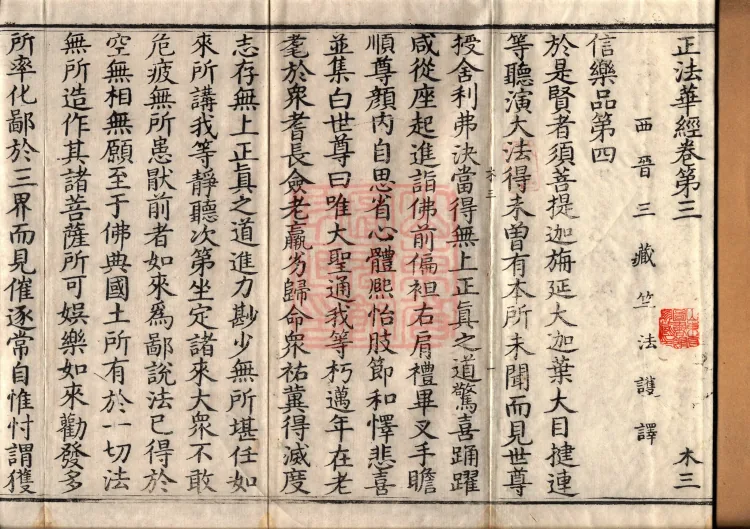 正法華經卷第三
木三
西晉三藏竺法護譯
信樂品第四
於是賢者須菩提迦旃延大迦葉大目揵連
等聽演大法得未曾有本所未聞而見世尊
授舍利弗決當得無上正真之道驚喜踊躍
咸從座起進詣佛前偏袒右肩禮畢叉手瞻
順尊顏內自思省心體熙怡肢節和懌悲喜
並集白世尊曰唯大聖通我等朽邁年在老
耄於眾耆長僉老羸劣歸命眾祐冀得滅度
志存無上正真之道進力尠少無所堪任如
來所講我等靜聽次第坐定諸來大眾不敢
危疲無所患猒前者如來為鄙說法已得於
空無相無願至于佛典國土所有於一切法
無所造作其諸菩薩所可娛樂如來勸發多
所率化鄙於三界而見催逐常自惟忖謂獲
木三